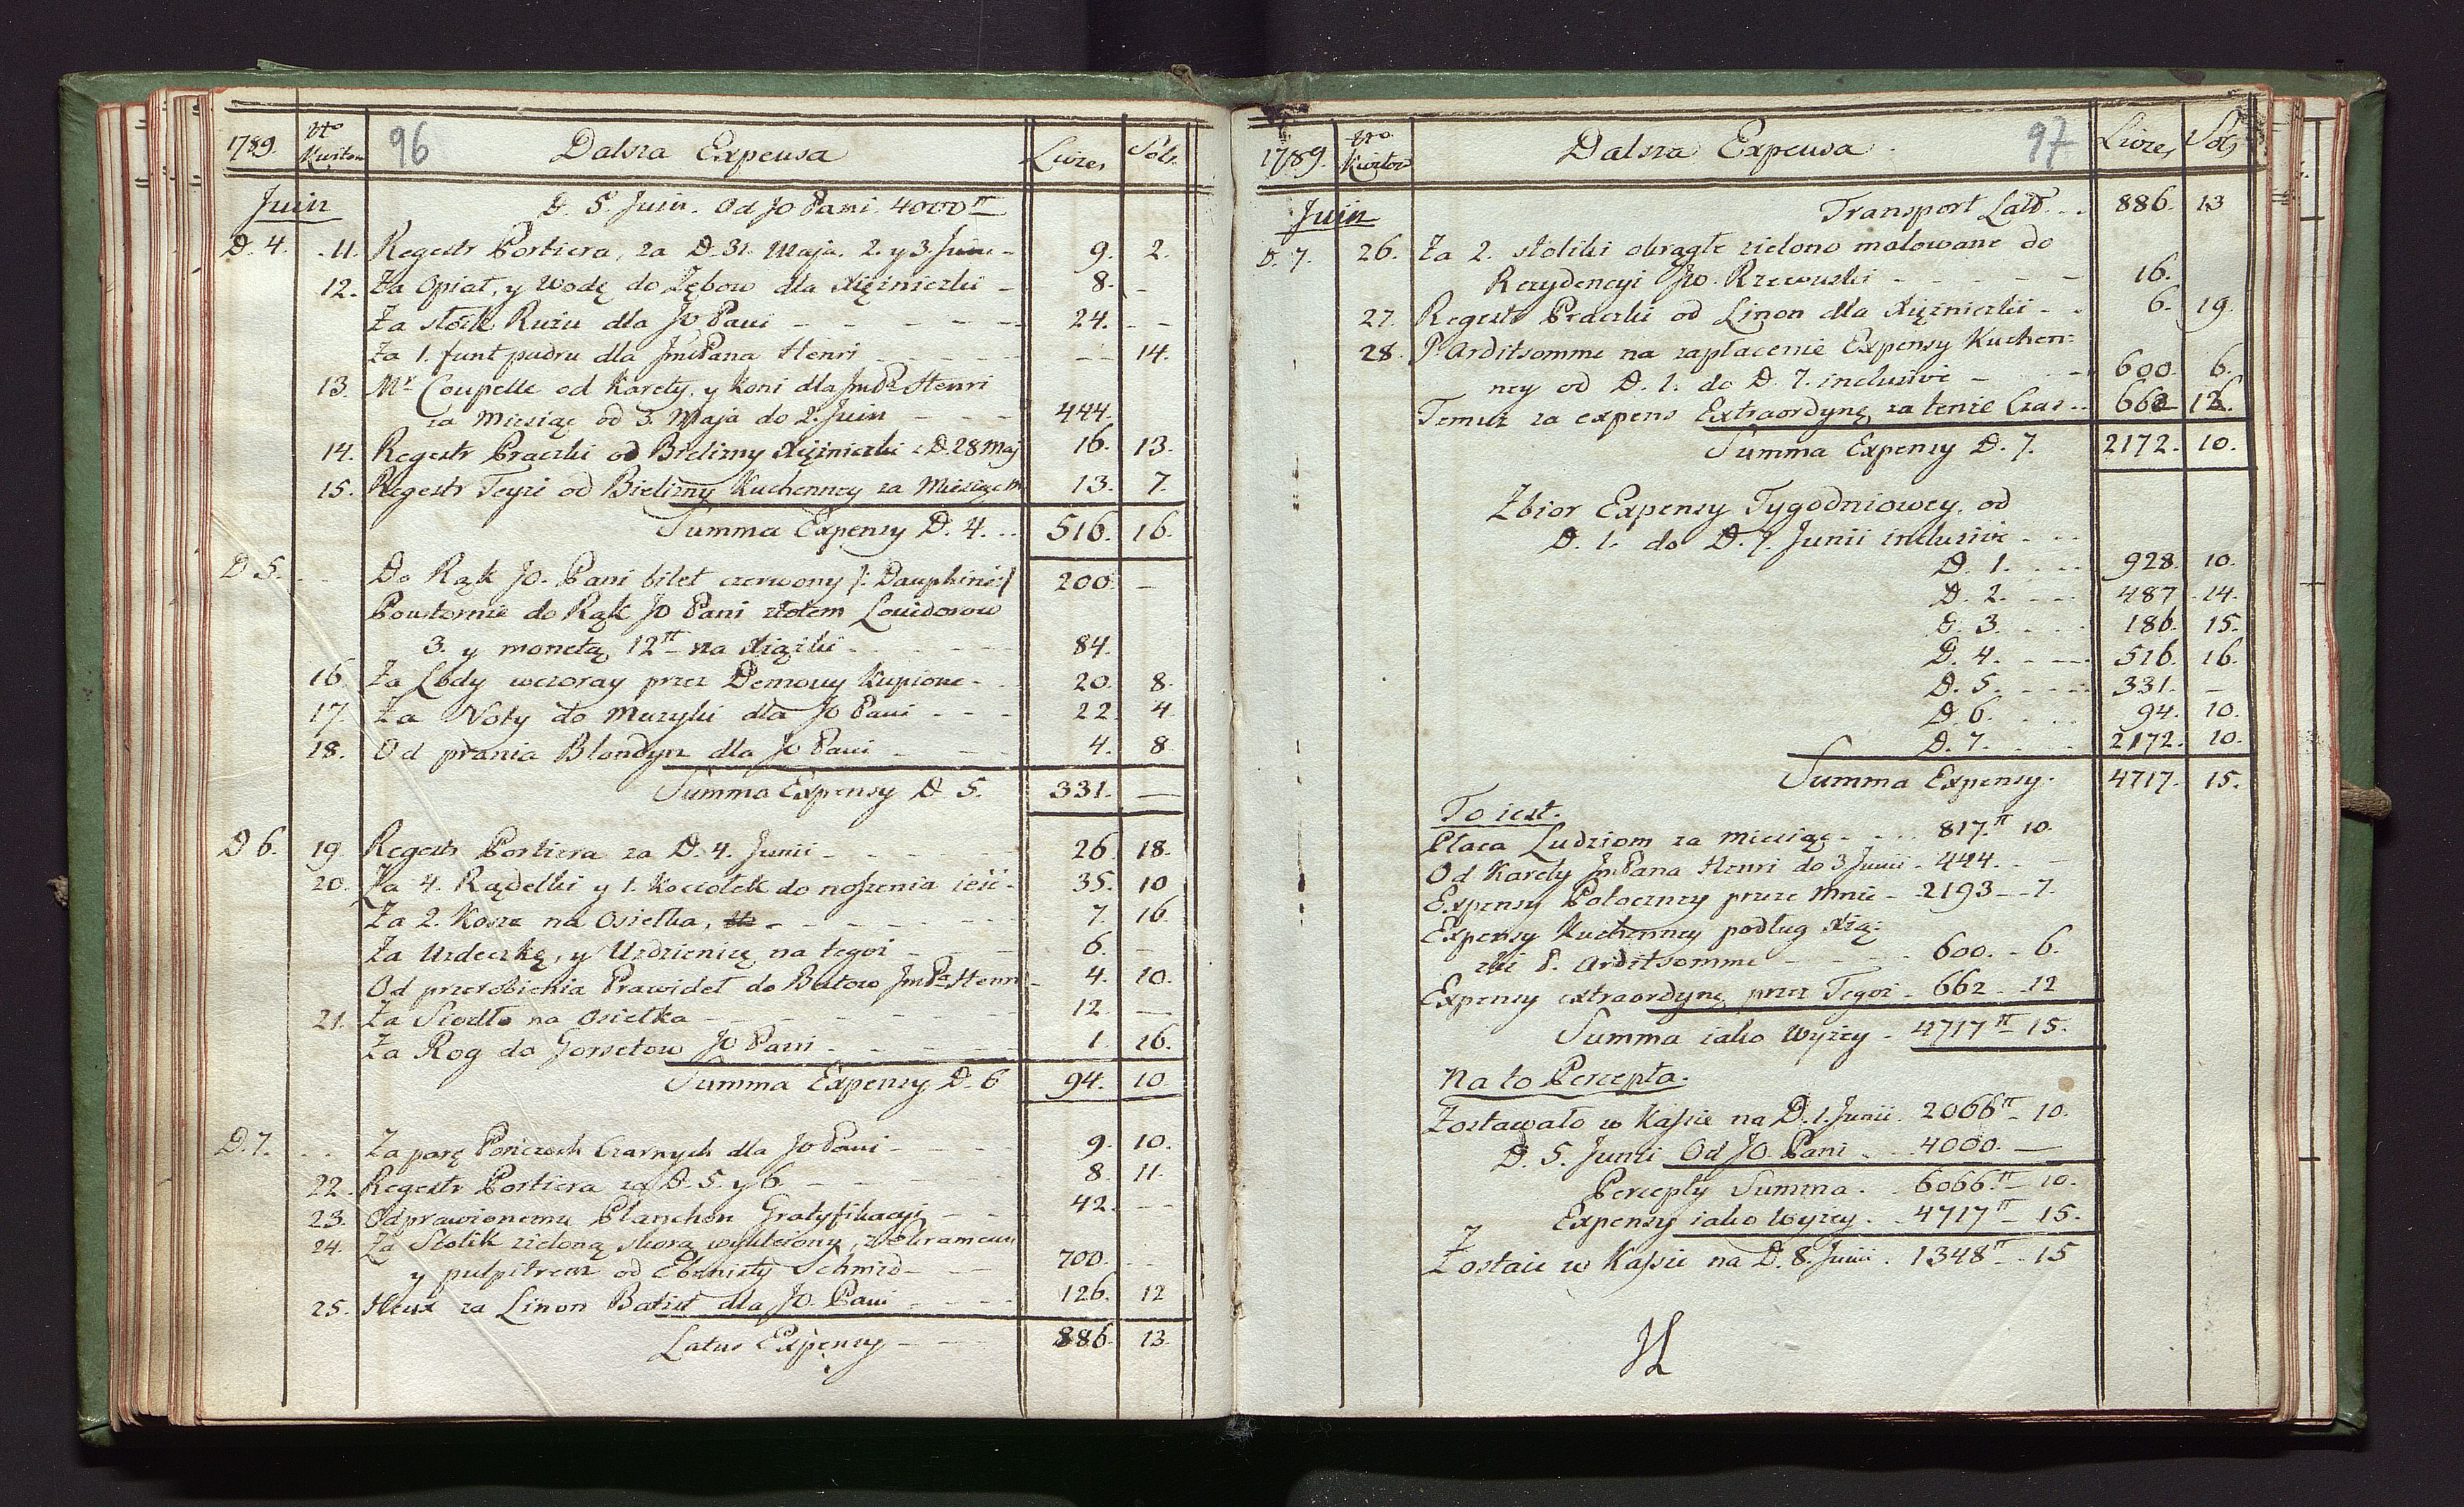 1789. Nro Kwitow 96 Dalsza Expensa Livres Sols
Juin D. 5. Juin. Od JO Pani. 4000tt
D. 4. 11. Regestr Portiera, za D. 31. Maja. 2. y 3. Juin - 9. 2.
12. Za Opiat, y Wodę do Zębow dla Xiężniczki - 8. -
Za słoik Rużu dla JO Pani - - - 24. - -
Za 1. funt pudru dla JmPana Henri - - - 14.
13. Mr Coupelle od Karety, y Koni dla JmPa Henri
za Miesiąc od 3. Maja do 2. Juin - - - 444.
14. Regestr Praczki od Bielizny Xiężniczki z D. 28 Maj 16. 13.
15. Regestr Teyże od Bielizny Kuchenney za Miesiąc 13. 7.
Summa Expensy D. 4. .. 516. 16.
D 5. .. Do Rąk JO. Pani bilet czerwony /: Dauphine:/ 200. -
Powtornie do Rąk JO Pani złotem Louidorow
3. y monetą 12tt na Xiążki - - - 84.
16. Za Lody wczoray przez Demowy Kupione - 20. 8.
17. Za Noty do Muzyki dla JO Pani - - - 22. 4
18. Od prania Blondyn dla JO Pani - - - 4. 8
Summa Expensy D 5. 331. -
D 6. 19. Regestr Portiera za D. 4. Junii - - - 26. 18.
20. Za 4. Rądelki y 1. Kociołek do noszenia ieść - 35. 10
Za 2. Kosze na Osiełka, - - - 7. 16.
Za Uzdeczkę, y Uzdzienicę na tegoż - - - 6. -
Od przerobienia Prawideł do Botow JmPa Henri - 4. 10.
21. Za Siodło na Osiełka - - - 12. -
Za Rog do Gorsetow JO Pani - - - 1. 16.
Summa Expensy D. 6 94. 10.
D. 7. .. Za parę Pończoch Czarnych dla JO Pani - - - 9. 10.
22. Regestr Portiera za D. 5. y 6. - - - 8. 11.
23. Odprawionemu Planchon Gratyfikacyi - - - 42. - -
24. Za Stolik zieloną skorą wykleiony, z Ekranem
y pulpitrem od Ebenisty Schmid - - - 700. - -
25. Heux za Linon Batist dla JO. Pani - - - 126. 12
Latus Expensy - - - 886. 13.
1789. Nro Kwitow Dalsza Expensa. 97 Livres Sols
Juin Transport Lat̄s. .. 886. 13
D. 7. 26. Za 2. stoliki okrągłe zielono malowane do
Rezydencyi JW. Rzewuski - - - 16.
27. Regestr Praczki od Linon dla Xiężniczki - . 6. 19.
28. Pr Arditsomme na zapłacenie Expensy Kuchen:
ney od D. 1. do D. 7. inclusive - - 600. 6.
Temuż za expens Extraordyng za tenże Czas .. 662 12.
Summa Expensy D. 7. 2172. 10.
Zbior Expensy Tygodniowey, od
D. 1. do D. 7. Junii inclusive - ..
D. 1. - - - 928. 10.
D. 2. - - - 487 . 14.
D. 3. - - - 186. 15.
D. 4. - - - 516. 16.
D. 5. - - - 331. -
D. 6. - - - 94. 10.
D. 7. - - - 2172. 10.
Summa Expensy. 4717. 15.
To iest.
Płaca Ludziom za miesiąc - - - 817.tt 10.
Od Karety JmPana Henri do 3 Junii . 444. - -
Expensy Potoczney przez Mnie - 2193 - 7.
Expensy Kuchenney podług Xią:
żki P. Arditsomme - - - 600. - 6.
Expensy extraordyng przez Tegoż - 662 - 12
Summa iako Wyżey - 4717tt 15.
Na to Percepta.
Zostawało w Kassie na D. 1. Junii. 2066tt 10.
D. 5. Junii Od JO. Pani . .. 4000. -
Percepty Summa . . 6066.tt - 10.
Expensy iako Wyżey . . 4717tt 15.
Zostaie w Kassie na D. 8. Junii . 1348tt .. 15